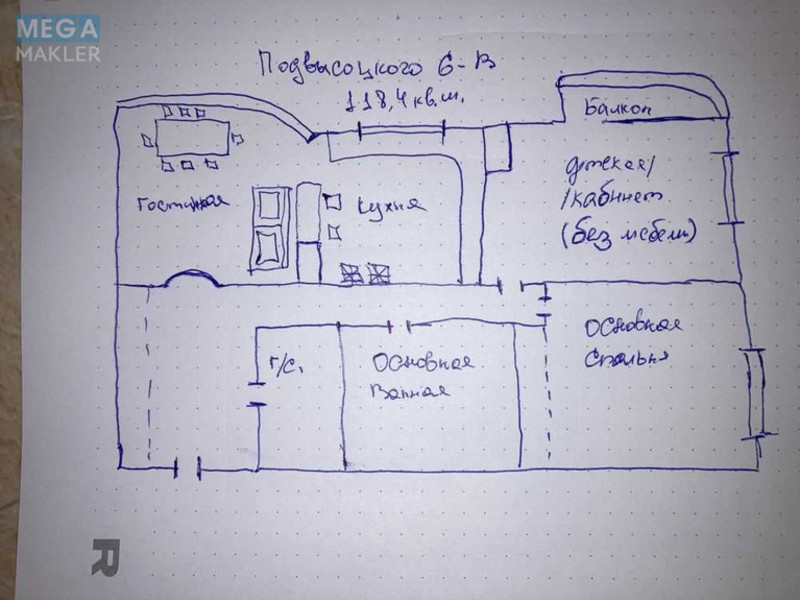 MEGA
MAKLER
Подвысоцкого 6-В
118,4 кв.м.
Балкон
Гостинная
Кухня
детская/
/кабинет
(без мебели)
Основная
Спальня
Г/С.
Основная
Ванная
R